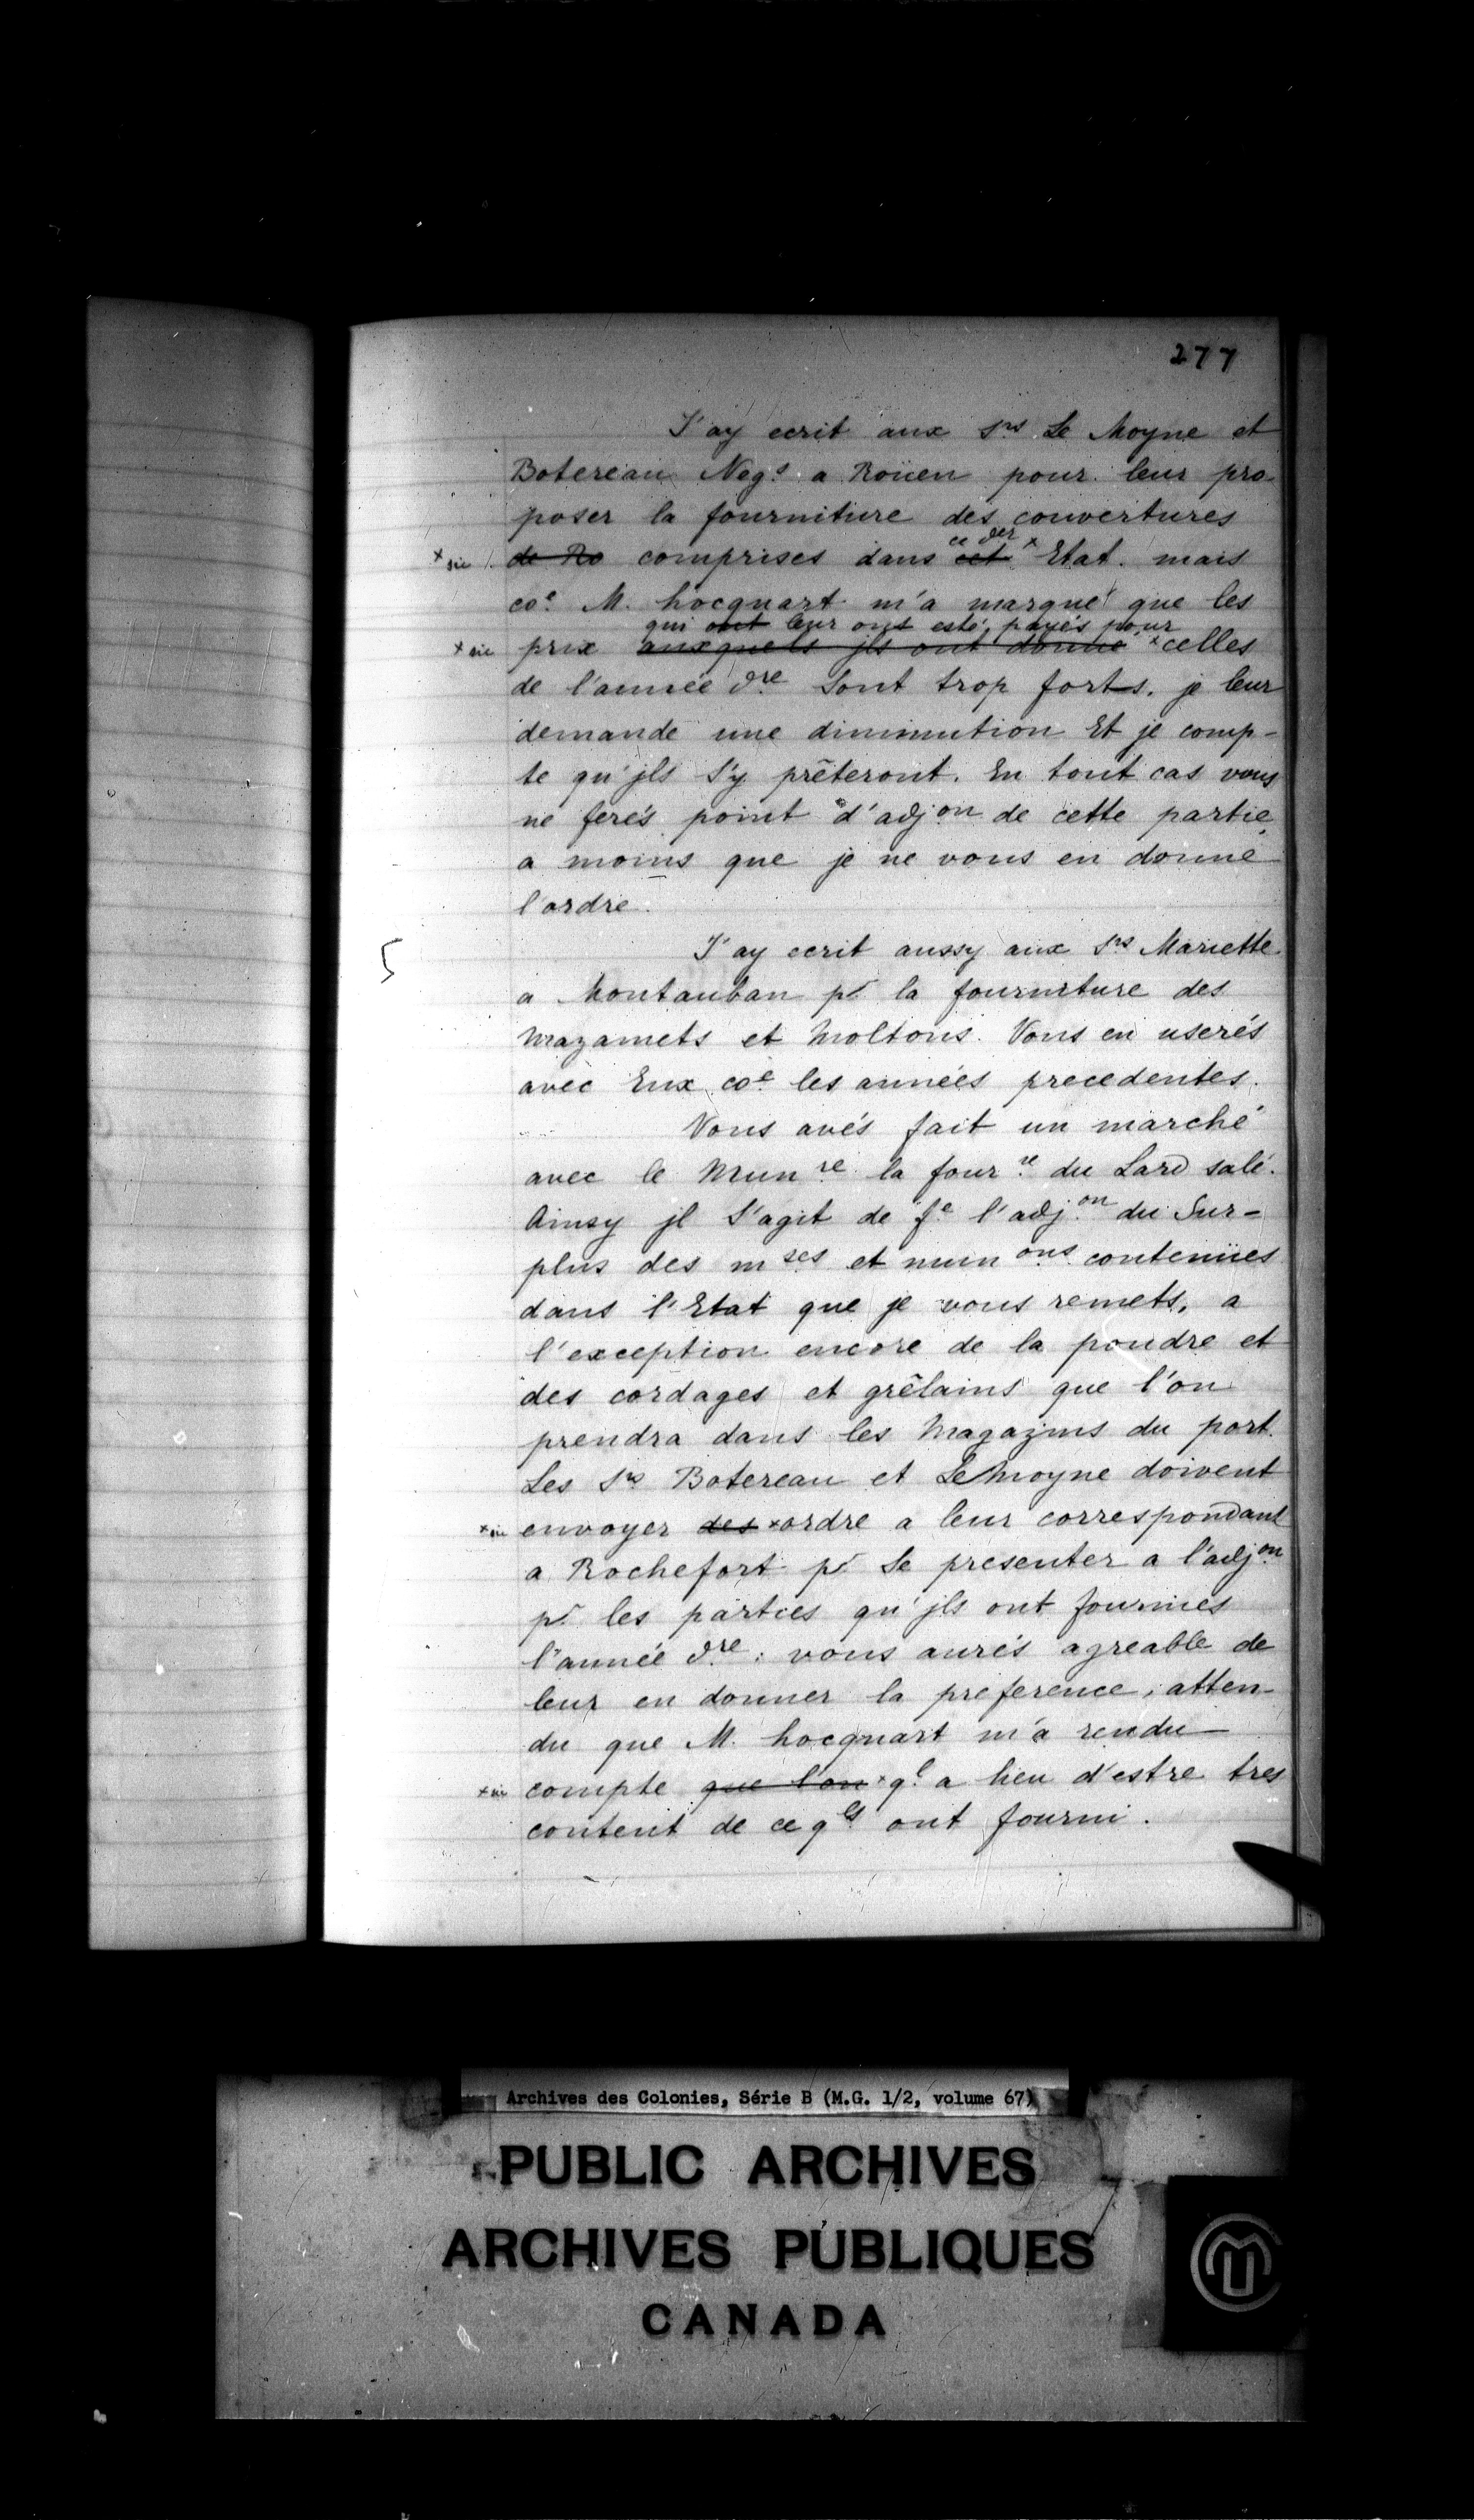 277
J'ay ecrit aux Srs Le Moyne et
Botereau Negs a Roüen pour leur pro-
poser la fourniture des couvertures
ce der
x sic de Ro comprises dans cet x Etat. mais
coe M. hocquart m'a marqué que les
qui ont leur ont esté payés pour
x sic prix auxquels jls ont donné x celles
de l'année dre Sont trop forts. je leur
demande une diminution Et je comp-
te qu'jls S'y prêteront. En tout cas vous
ne ferés point d'adjon de cette partie
a moins que je ne vous en donne
l'ordre.
5
J'ay ecrit aussy aux Srs Mariette
a Montauban pr la fourniture des
Mazamets et Moltons. Vous en userés
avec Eux coe les années precedentes.
Vous avés fait un marché
avec le Munre la fourre du Lard salé.
Ainsy jl S'agit de fe l'adjon du Sur-
plus des mses et munons contenües
dans l'Etat que je vous remets, a
l'exception encore de la poudre et
des cordages et grêlains que l'on
prendra dans les Magazins du port.
Les Srs Botereau et LeMoyne doivent
x sic envoyer des x ordre a leur correspondant
a Rochefort pr Se presenter a l'adjon
pr les parties qu'jls ont fournies
l'année dre. vous aurés agreable de
leur en donner la preference, atten-
du que M. hocquart m'a rendu
x sic compte que l'on x ql a lieu d'estre tres
content de ce qls ont fourni.
Archives des Colonies, Série B (M.G. 1/2, volume 67)
PUBLIC ARCHIVES
ARCHIVES PUBLIQUES
CANADA